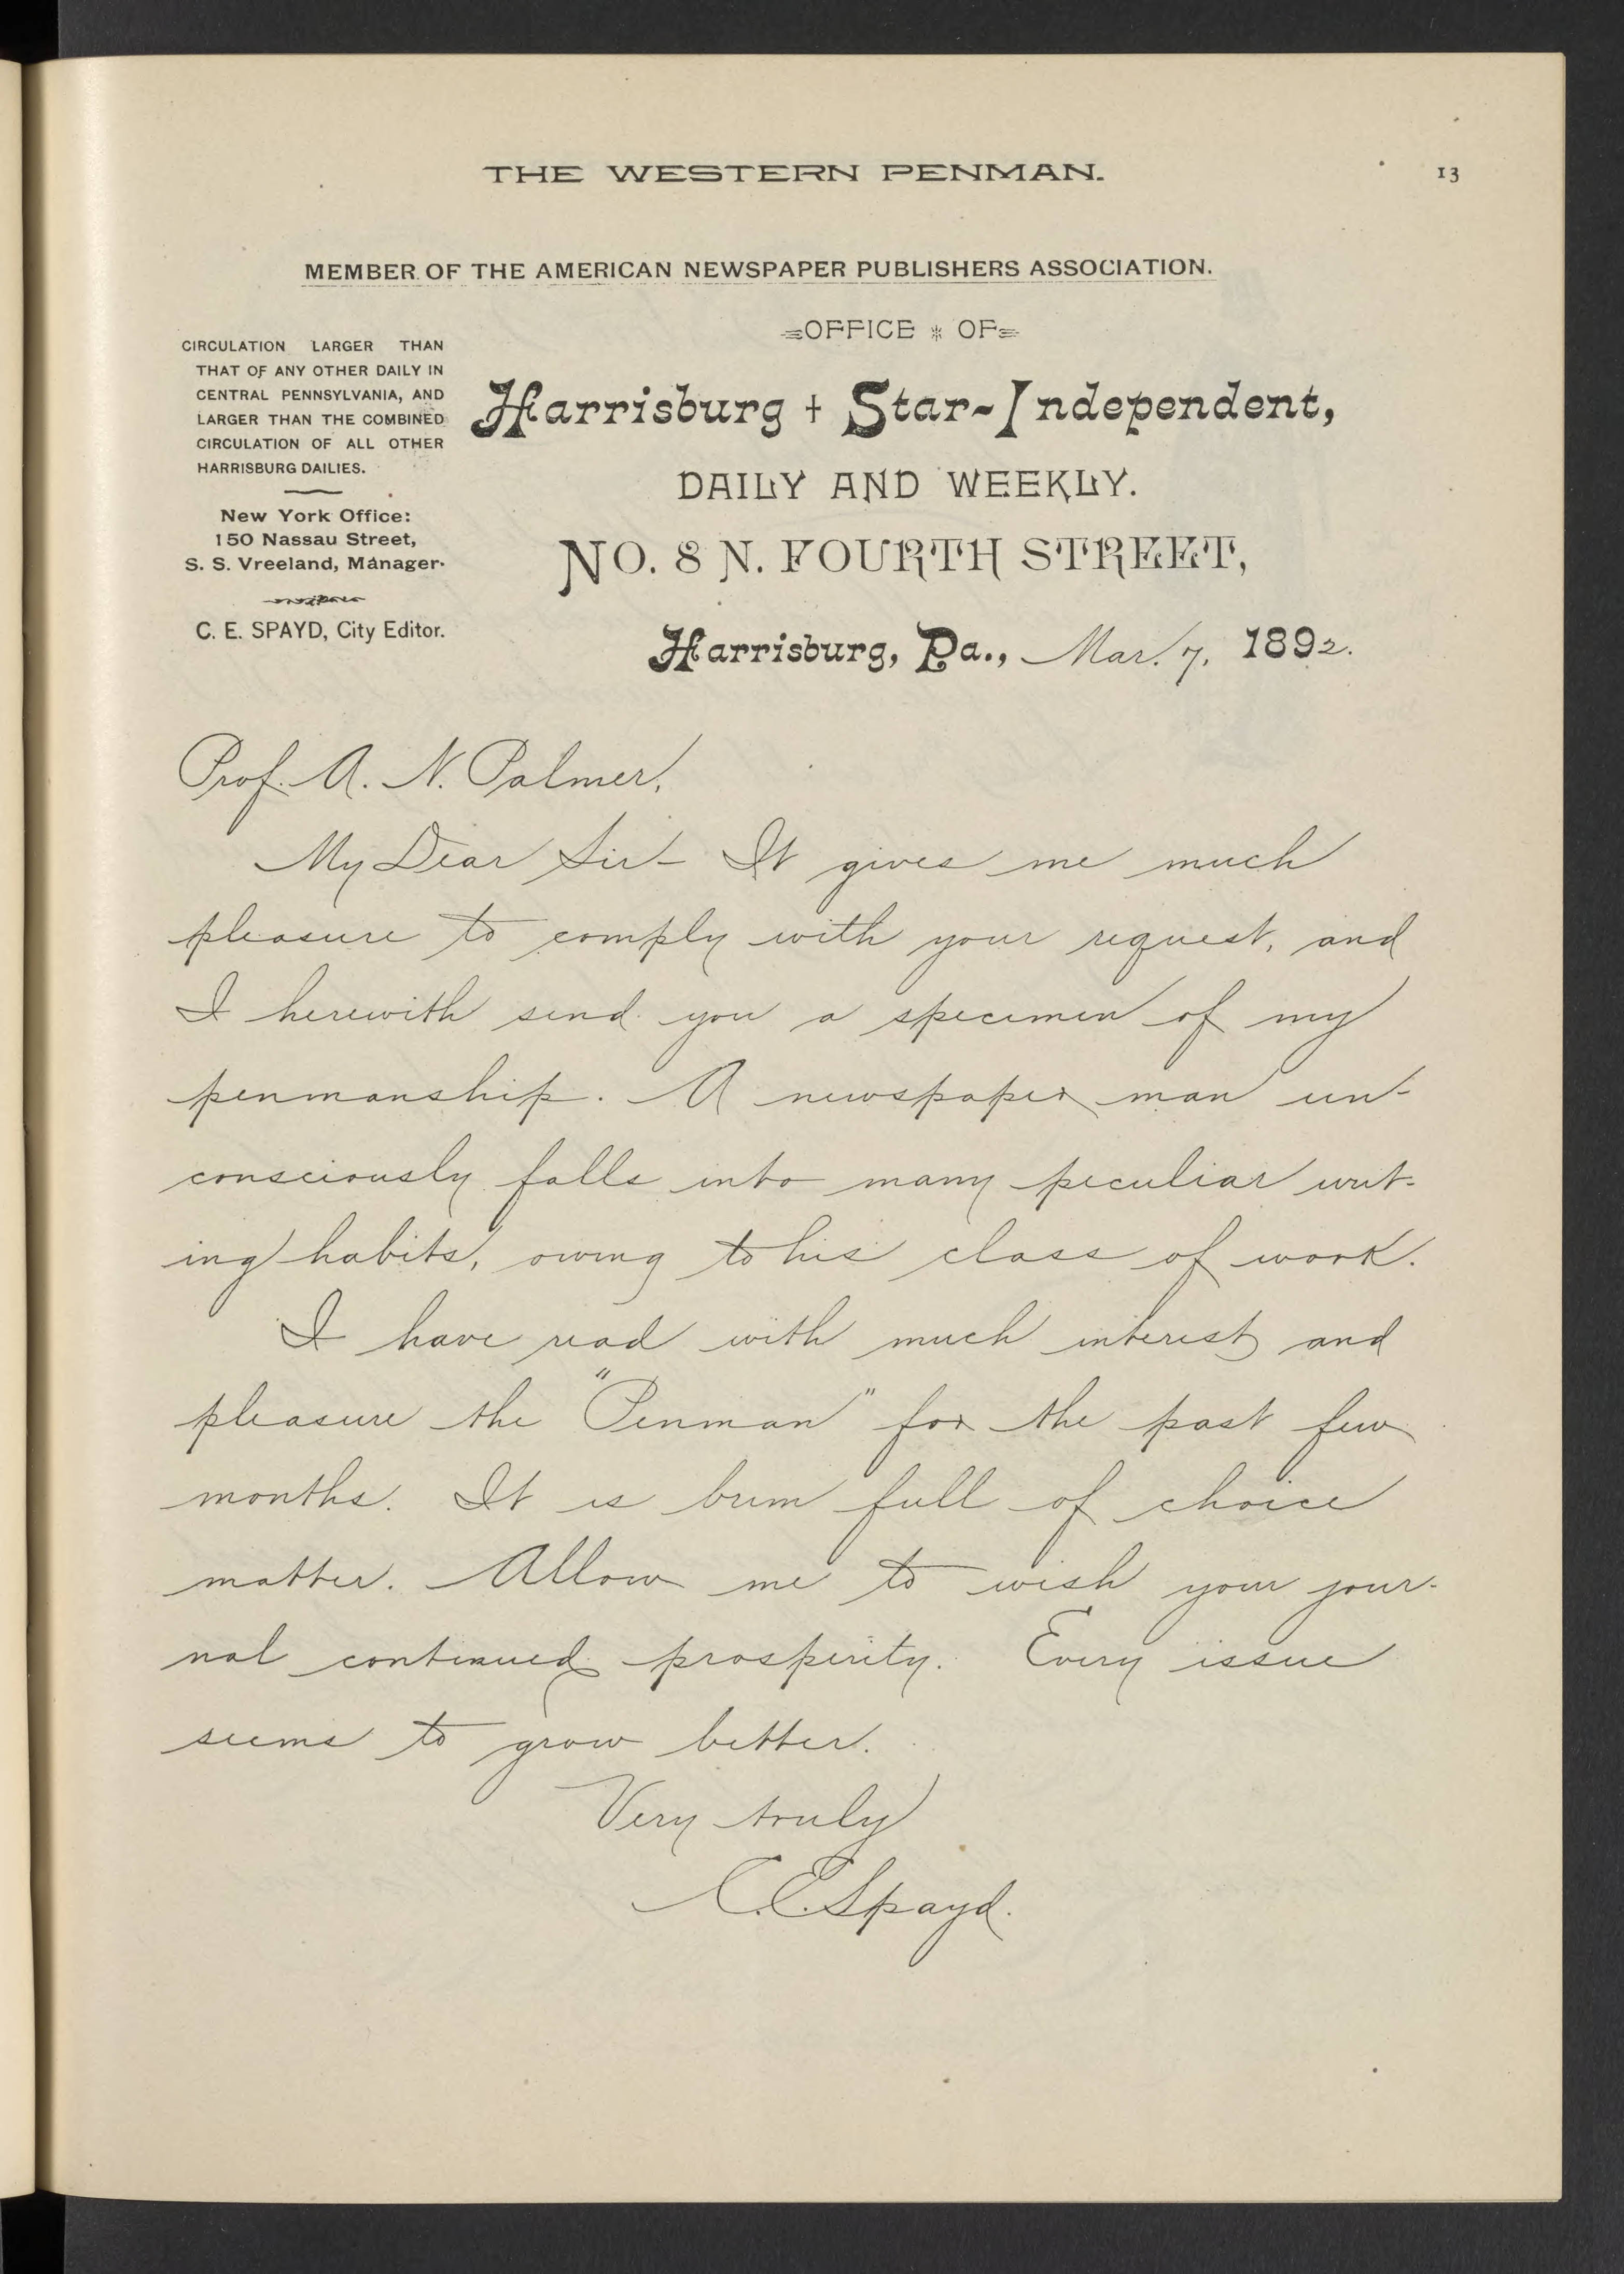 THE WESTERN PENMAN.
13
MEMBER OF THE AMERICAN NEWSPAPER PUBLISHERS ASSOCIATION.
CIRCULATION LARGER THAN
THAT OF ANY OTHER DAILY IN
CENTRAL PENNSYLVANIA, AND
LARGER THAN THE COMBINED
CIRCULATION OF ALL OTHER
HARRISBURG DAILIES.
New York Office:
150 Nassau Street,
S. S. Vreeland, Manager.
C. E. SPAYD, City Editor.
OFFICE * OF
Harrisburg + Star-Independent,
DAILY AND WEEKLY.
NO. 8 N. FOURTH STREET,
Harrisburg, Pa., Mar. 7, 1892.
Prof. A. N. Palmer,
My Dear Sir- It gives me much
pleasure to comply with your request, and
I herewith send you a specimen of my
penmanship. A newspaper man un-
consciously falls into many peculiar writ-
ing habits, owing to his class of work.
I have read with much interest and
pleasure the "Penman" for the past few
months. It is brim full of choice
matter. Allow me to wish your jour-
nal continued prosperity. Every issue
seems to grow better.
Very truly
C. E. Spayd.